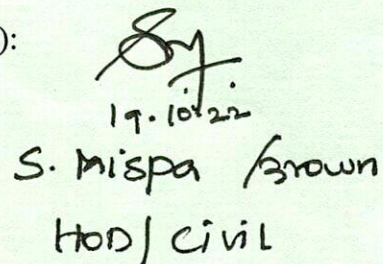 ):
19.10.22
S. Mispa Brown
HOD/ civil